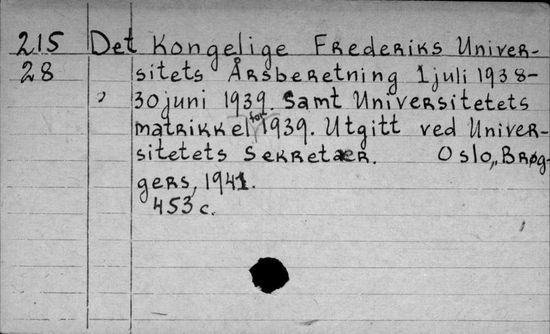 215 Det Kongelige Frederiks Univer-
28 sitets Årsberetning 1 juli 1938-
30 juni 1939. Samt Universitetets
matrikkel for 1939. Utgitt ved Univer-
sitetets Sekretær. Oslo, Brøg-
gers, 1941.
453 c.